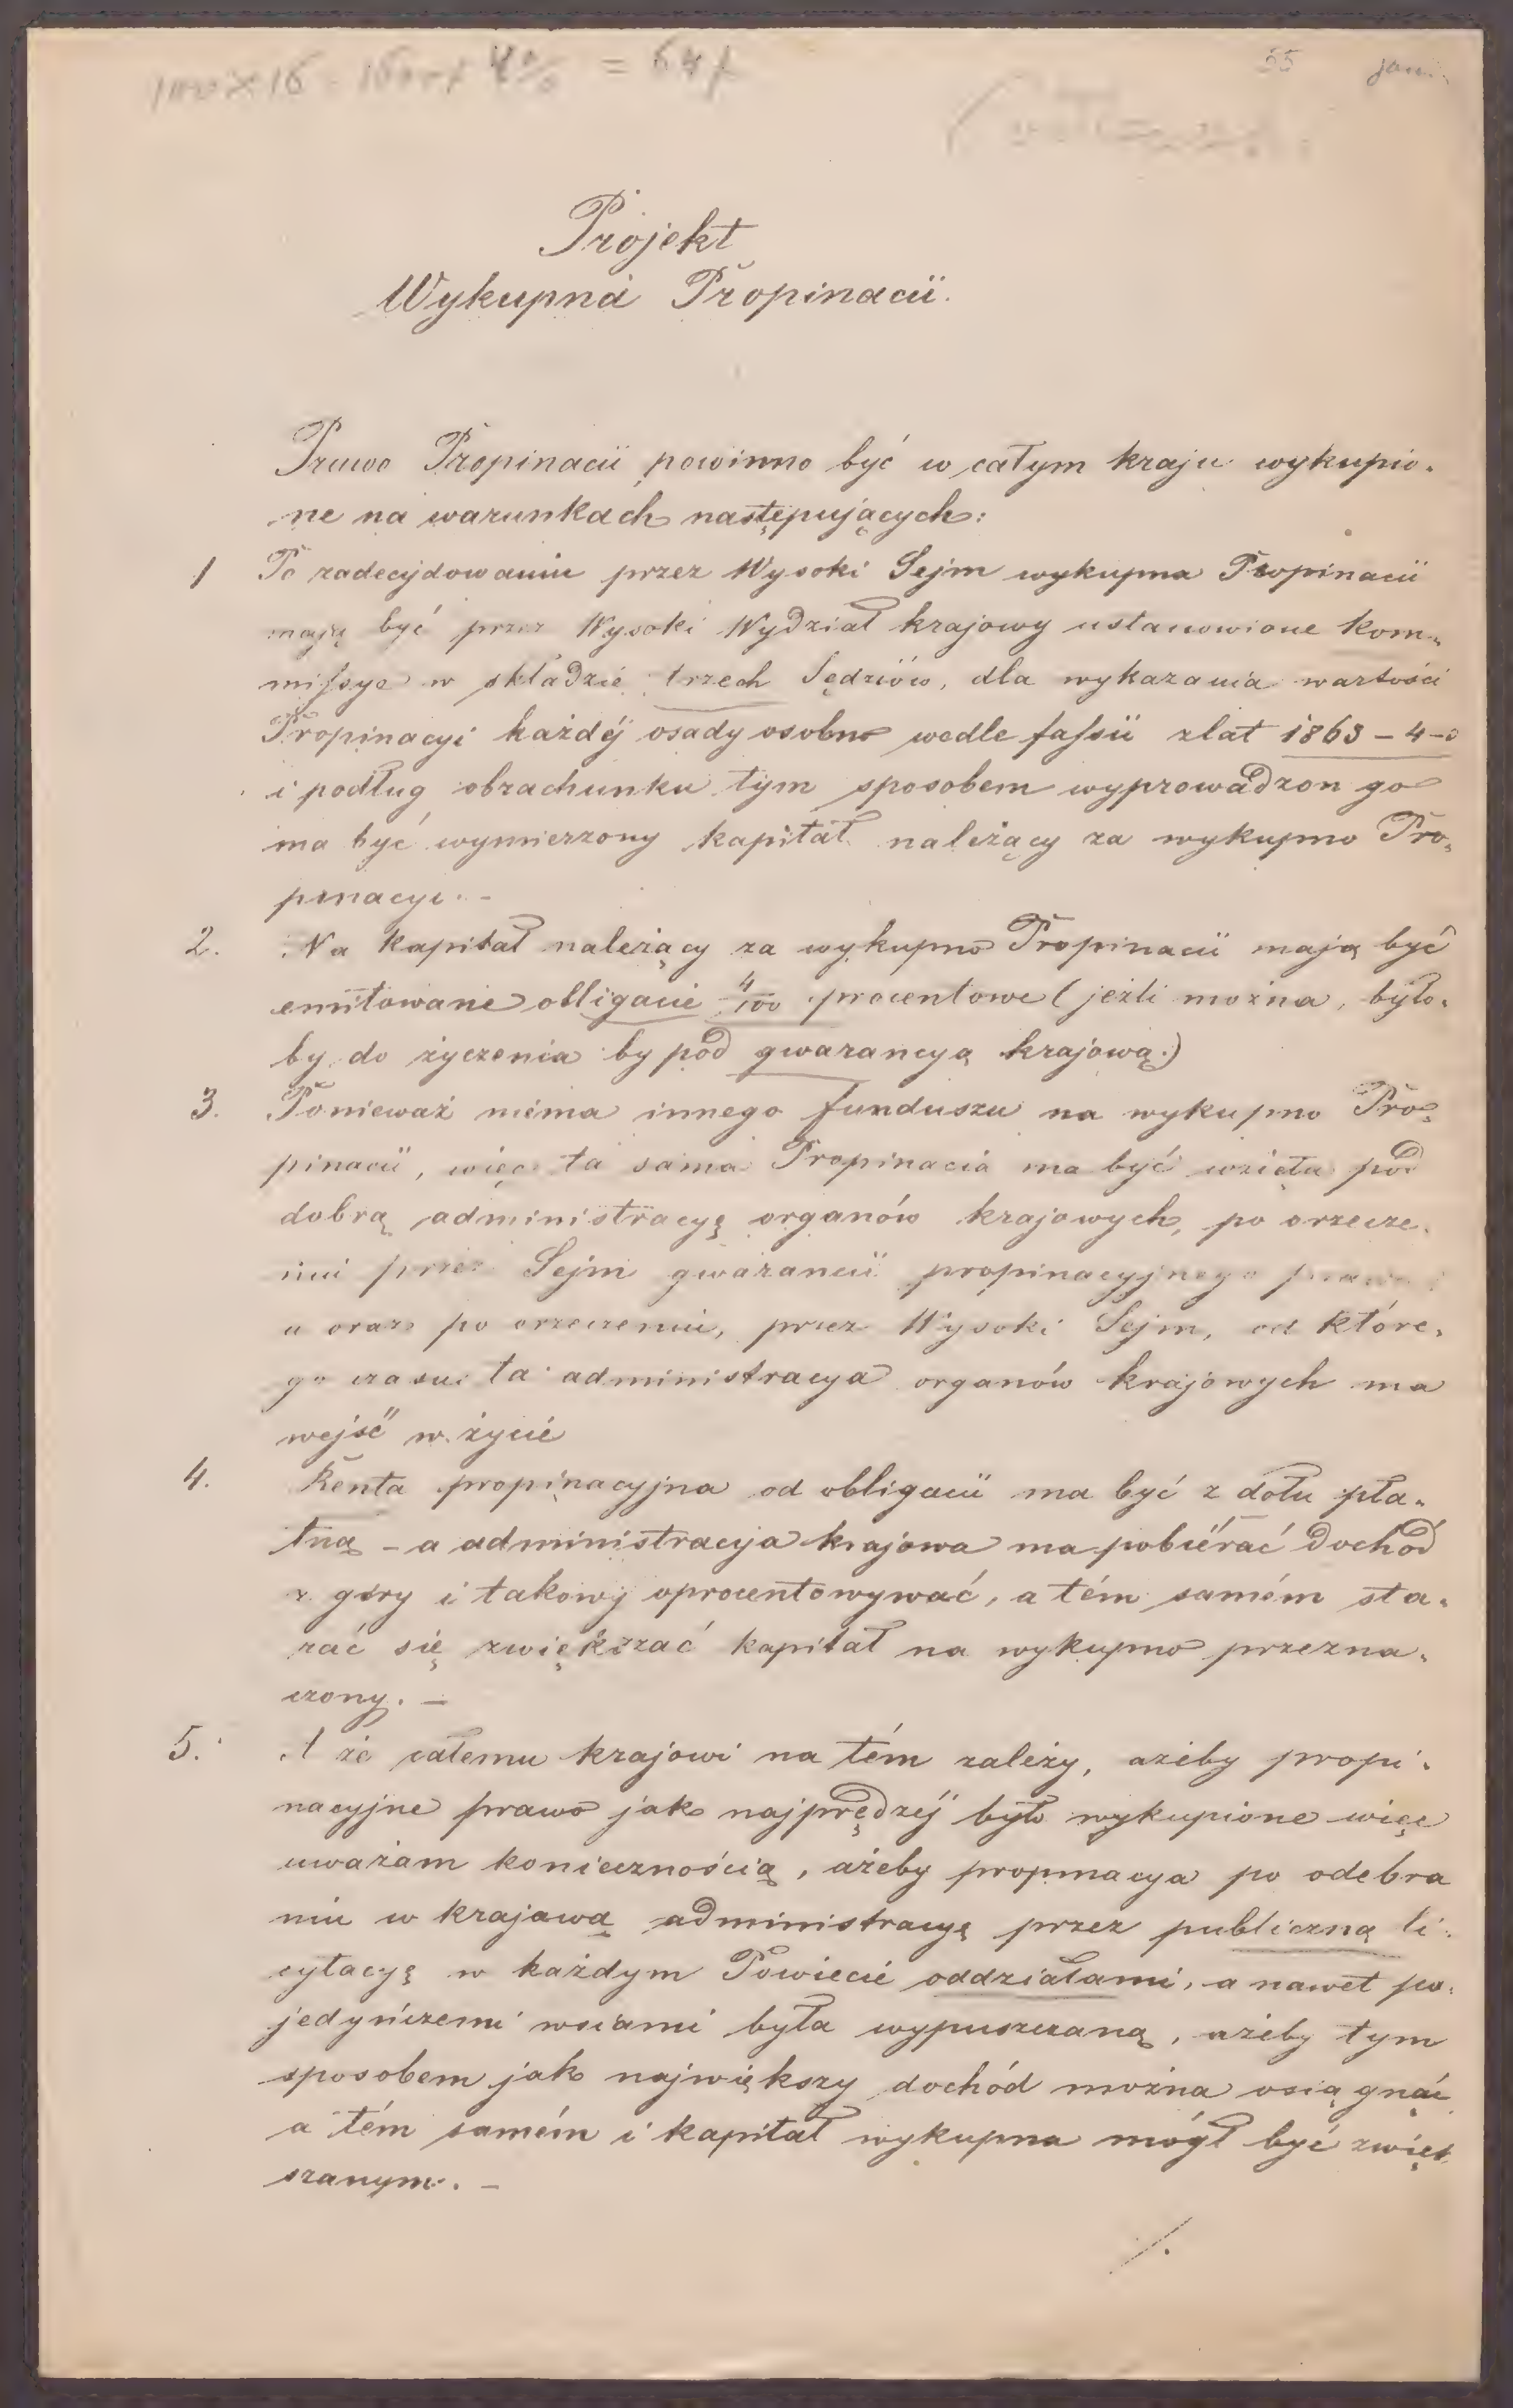 55
Projekt
Wykupna Propinacii.
Prawo Propinacii powinno być w całym kraju wykupio-
ne na warunkach następujących:
1 Po zadecydowaniu przez Wysoki Sejm wykupna Propinacii
mają być przez Wysoki Wydział krajowy ustanowione kom-
missye w składzie trzech Sędziów, dla wykazania wartości
Propinacyi każdéj osady osobno wedle fassii z lat 1863-4-5
i podług obrachunku tym sposobem wyprowadzon go
ma być wymierzony kapitał należący za wykupno Pro-
pinacyi. -
2. Na kapitał należący za wykupno Propinacii mają być
emitowane obligacie 4/100 procentowe (jeźli można, było-
by do życzenia by pod gwarancyą krajową.)
3. Ponieważ niéma innego funduszu na wykupno Pro-
pinacii, więc ta sama Propinacia ma być wzięta pod
dobrą administracyę organów krajowych, po orzecze-
niu przez Sejm gwarancii propinacyjnego prawa
a oraz po orzeczeniu, przez Wysoki Sejm, od które-
go czasu ta administracya organów krajowych ma
wejść w życie
4. Renta propinacyjna od obligacii ma być z dołu pła-
tną - a administracja krajowa ma pobiérać dochód
z góry i takowy oprocentowywać, a tém samém sta-
rać się zwiększać kapitał na wykupno przezna-
czony. -
5. A że całemu krajowi na tém zależy, ażeby propi-
nacyjne prawo jak najprędzéj było wykupione więc
uważam koniecznością, ażeby propinacya po odebra
niu w krajową administracyę przez publiczną li-
cytacyę w każdym Powiecie oddziałami, a nawet po-
jedyńczemi wsiami była wypuszczaną, ażeby tym
sposobem jak największy dochód można osiągnąć
a tém samém i kapitał wykupna mógł być zwięk
szanym. -
/.